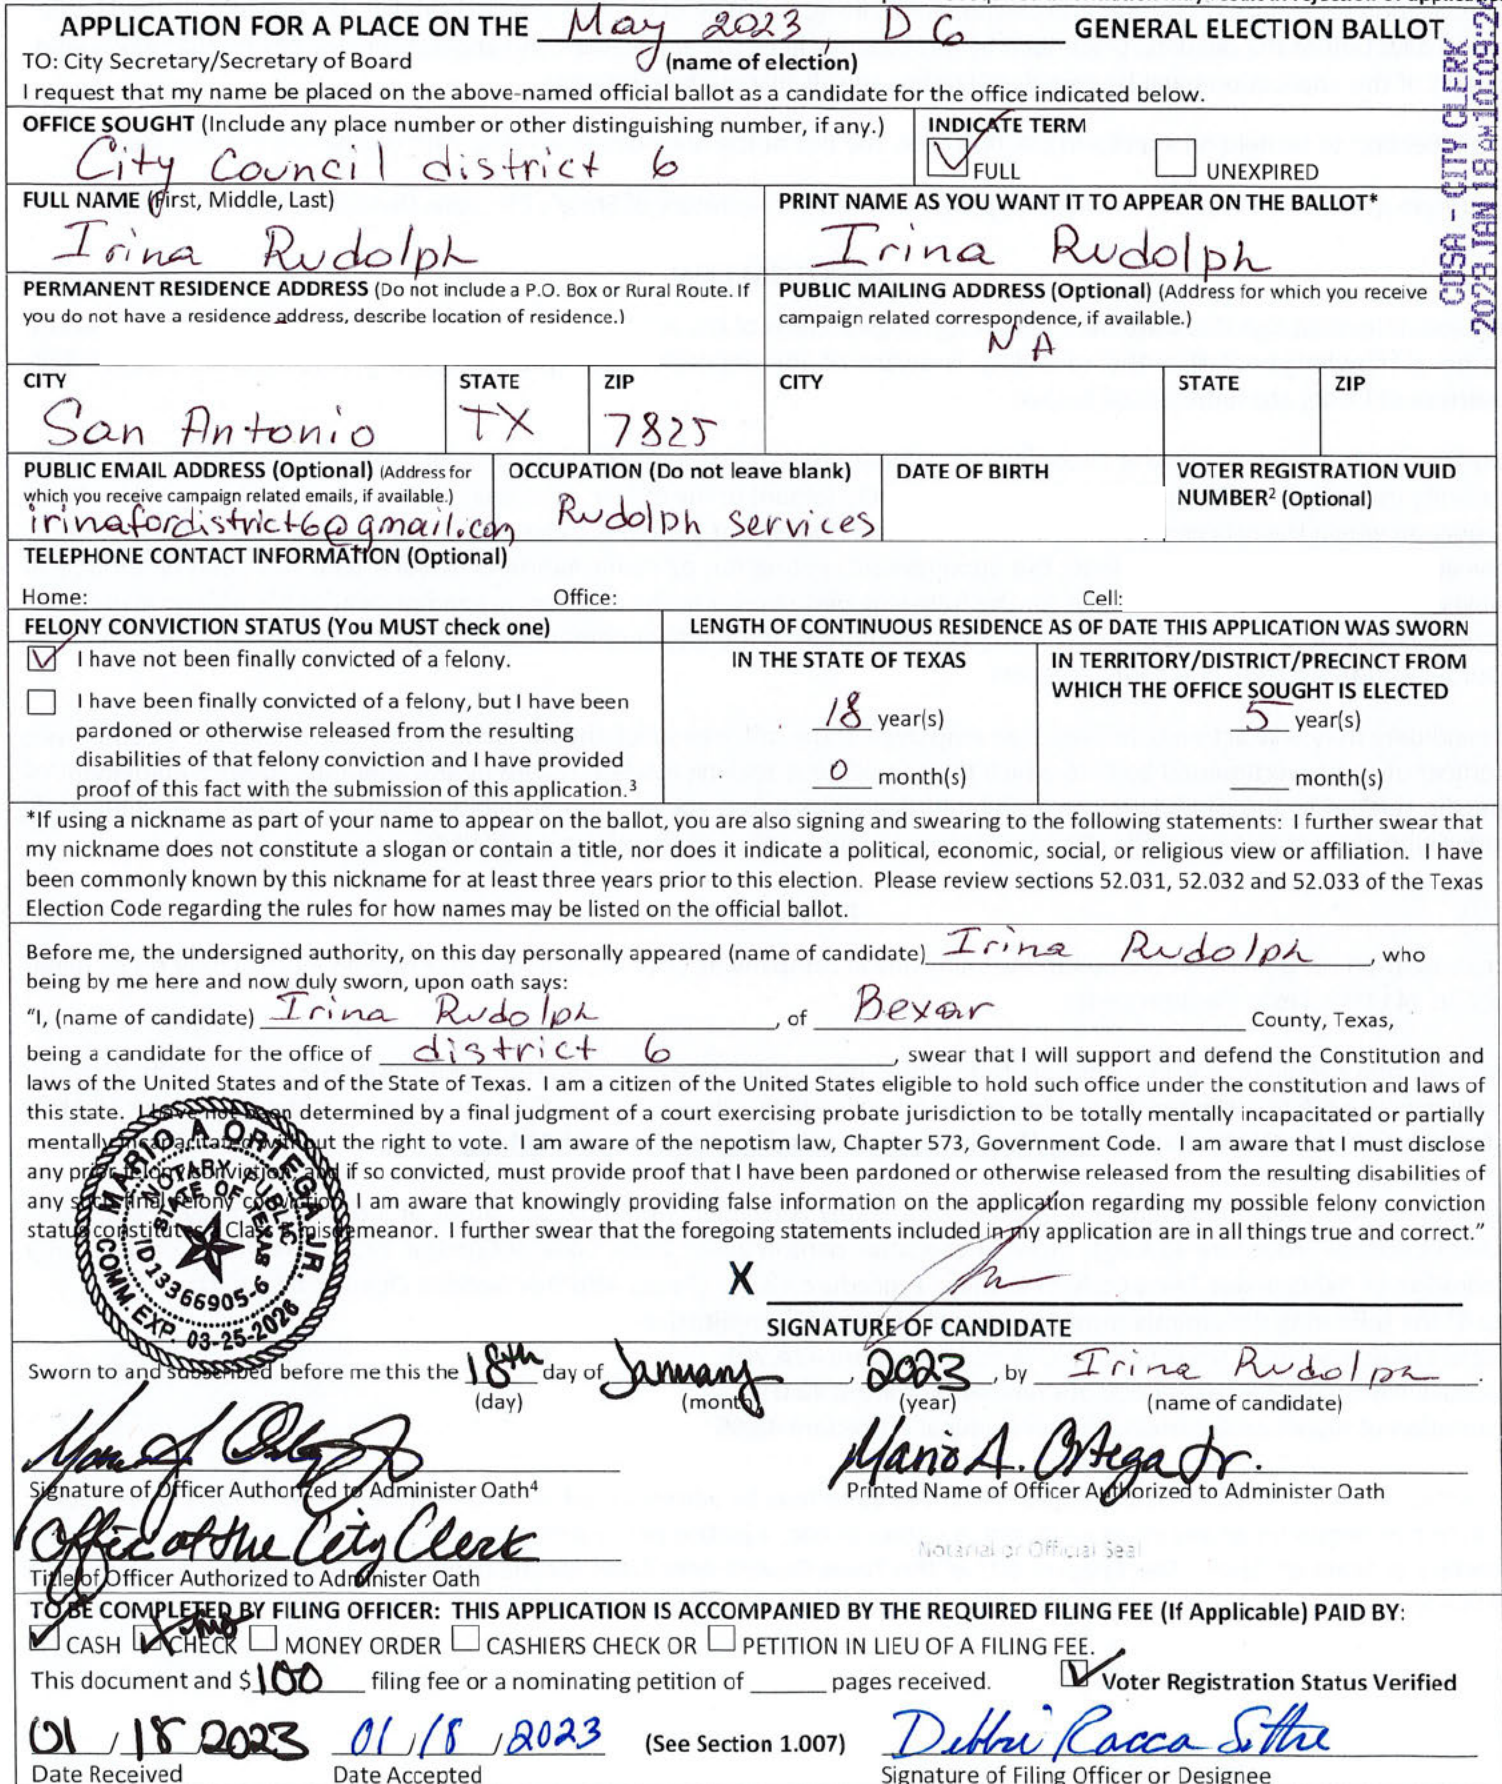 APPLICATION FOR A PLACE ON THE May 2023, D6 GENERAL ELECTION BALLOT
TO: City Secretary/Secretary of Board (name of election)
I request that my name be placed on the above-named official ballot as a candidate for the office indicated below.
OFFICE SOUGHT (Include any place number or other distinguishing number, if any.) INDICATE TERM
City Council district 6 FULL UNEXPIRED
COSA - CITY CLERK
2023 JAN 18 AM 10:09:2
FULL NAME (First, Middle, Last) PRINT NAME AS YOU WANT IT TO APPEAR ON THE BALLOT*
Irina Rudolph Irina Rudolph
PERMANENT RESIDENCE ADDRESS (Do not include a P.O. Box or Rural Route. If you do not have a residence address, describe location of residence.)
PUBLIC MAILING ADDRESS (Optional) (Address for which you receive campaign related correspondence, if available.)
NA
CITY STATE ZIP CITY STATE ZIP
San Antonio TX 7825
PUBLIC EMAIL ADDRESS (Optional) (Address for which you receive campaign related emails, if available.)
irinafordistrict6@gmail.com
OCCUPATION (Do not leave blank)
Rudolph services
DATE OF BIRTH
VOTER REGISTRATION VUID NUMBER² (Optional)
TELEPHONE CONTACT INFORMATION (Optional)
Home: Office: Cell:
FELONY CONVICTION STATUS (You MUST check one)
I have not been finally convicted of a felony.
I have been finally convicted of a felony, but I have been
pardoned or otherwise released from the resulting
disabilities of that felony conviction and I have provided
proof of this fact with the submission of this application.³
LENGTH OF CONTINUOUS RESIDENCE AS OF DATE THIS APPLICATION WAS SWORN
IN THE STATE OF TEXAS
18 year(s)
0 month(s)
IN TERRITORY/DISTRICT/PRECINCT FROM
WHICH THE OFFICE SOUGHT IS ELECTED
5 year(s)
month(s)
*If using a nickname as part of your name to appear on the ballot, you are also signing and swearing to the following statements: I further swear that
my nickname does not constitute a slogan or contain a title, nor does it indicate a political, economic, social, or religious view or affiliation. I have
been commonly known by this nickname for at least three years prior to this election. Please review sections 52.031, 52.032 and 52.033 of the Texas
Election Code regarding the rules for how names may be listed on the official ballot.
Before me, the undersigned authority, on this day personally appeared (name of candidate) Irina Rudolph, who
being by me here and now duly sworn, upon oath says:
"I, (name of candidate) Irina Rudolph, of Bexar County, Texas,
being a candidate for the office of district 6, swear that I will support and defend the Constitution and
laws of the United States and of the State of Texas. I am a citizen of the United States eligible to hold such office under the constitution and laws of
this state. I have not been determined by a final judgment of a court exercising probate jurisdiction to be totally mentally incapacitated or partially
mentally incapacitated without the right to vote. I am aware of the nepotism law, Chapter 573, Government Code. I am aware that I must disclose
any prior felony conviction, and if so convicted, must provide proof that I have been pardoned or otherwise released from the resulting disabilities of
any such final felony conviction. I am aware that knowingly providing false information on the application regarding my possible felony conviction
status constitutes a Class B misdemeanor. I further swear that the foregoing statements included in my application are in all things true and correct."
MARIO A ORTEGA JR.
NOTARY PUBLIC
STATE OF TEXAS
ID 13366905-6
COMM. EXP. 03-25-2026
X
SIGNATURE OF CANDIDATE
Sworn to and subscribed before me this the 18th day of January, 2023, by Irina Rudolph.
(day) (month) (year) (name of candidate)
Mario A. Ortega Jr.
Signature of Officer Authorized to Administer Oath⁴ Printed Name of Officer Authorized to Administer Oath
Office of the City Clerk
Notarial or Official Seal
Title of Officer Authorized to Administer Oath
TO BE COMPLETED BY FILING OFFICER: THIS APPLICATION IS ACCOMPANIED BY THE REQUIRED FILING FEE (If Applicable) PAID BY:
CASH CHECK MONEY ORDER CASHIERS CHECK OR PETITION IN LIEU OF A FILING FEE.
This document and $100 filing fee or a nominating petition of pages received. Voter Registration Status Verified
01/18/2023 01/18/2023 (See Section 1.007) Debbie Racca Sittre
Date Received Date Accepted Signature of Filing Officer or Designee